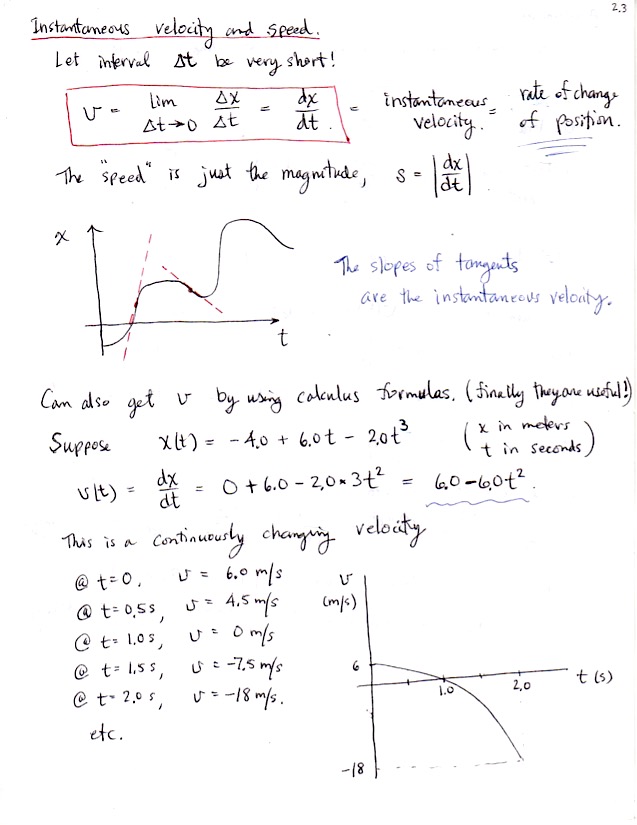 2.3
Instantaneous velocity and speed.
Let interval Δt be very short!
v = lim Δt→0 Δx/Δt = dx/dt. = instantaneous velocity. = rate of change of position.
The "speed" is just the magnitude, s = |dx/dt|
x
t
The slopes of tangents
are the instantaneous velocity.
Can also get v by using calculus formulas. (finally they are useful!)
Suppose x(t) = -4.0 + 6.0t - 2.0t³ (x in meters
t in seconds)
v(t) = dx/dt = 0 + 6.0 - 2.0*3t² = 6.0-6.0t².
This is a continuously changing velocity
@ t=0, v = 6.0 m/s
@ t=0.5s, v = 4.5 m/s
@ t=1.0s, v = 0 m/s
@ t=1.5s, v = -7.5 m/s
@ t=2.0s, v = -18 m/s.
etc.
v
(m/s)
6
1.0
2.0
t (s)
-18